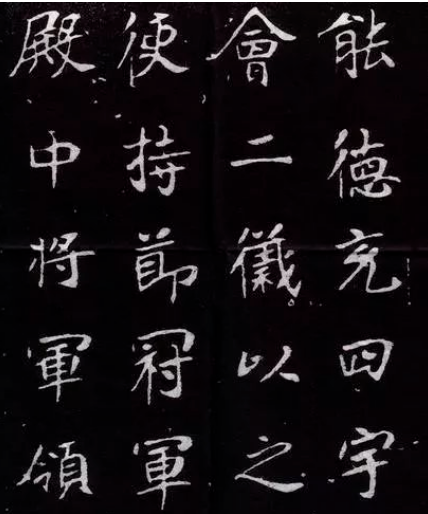 能德充四宇
會二儀以之
使持節冠軍
殿中将軍領